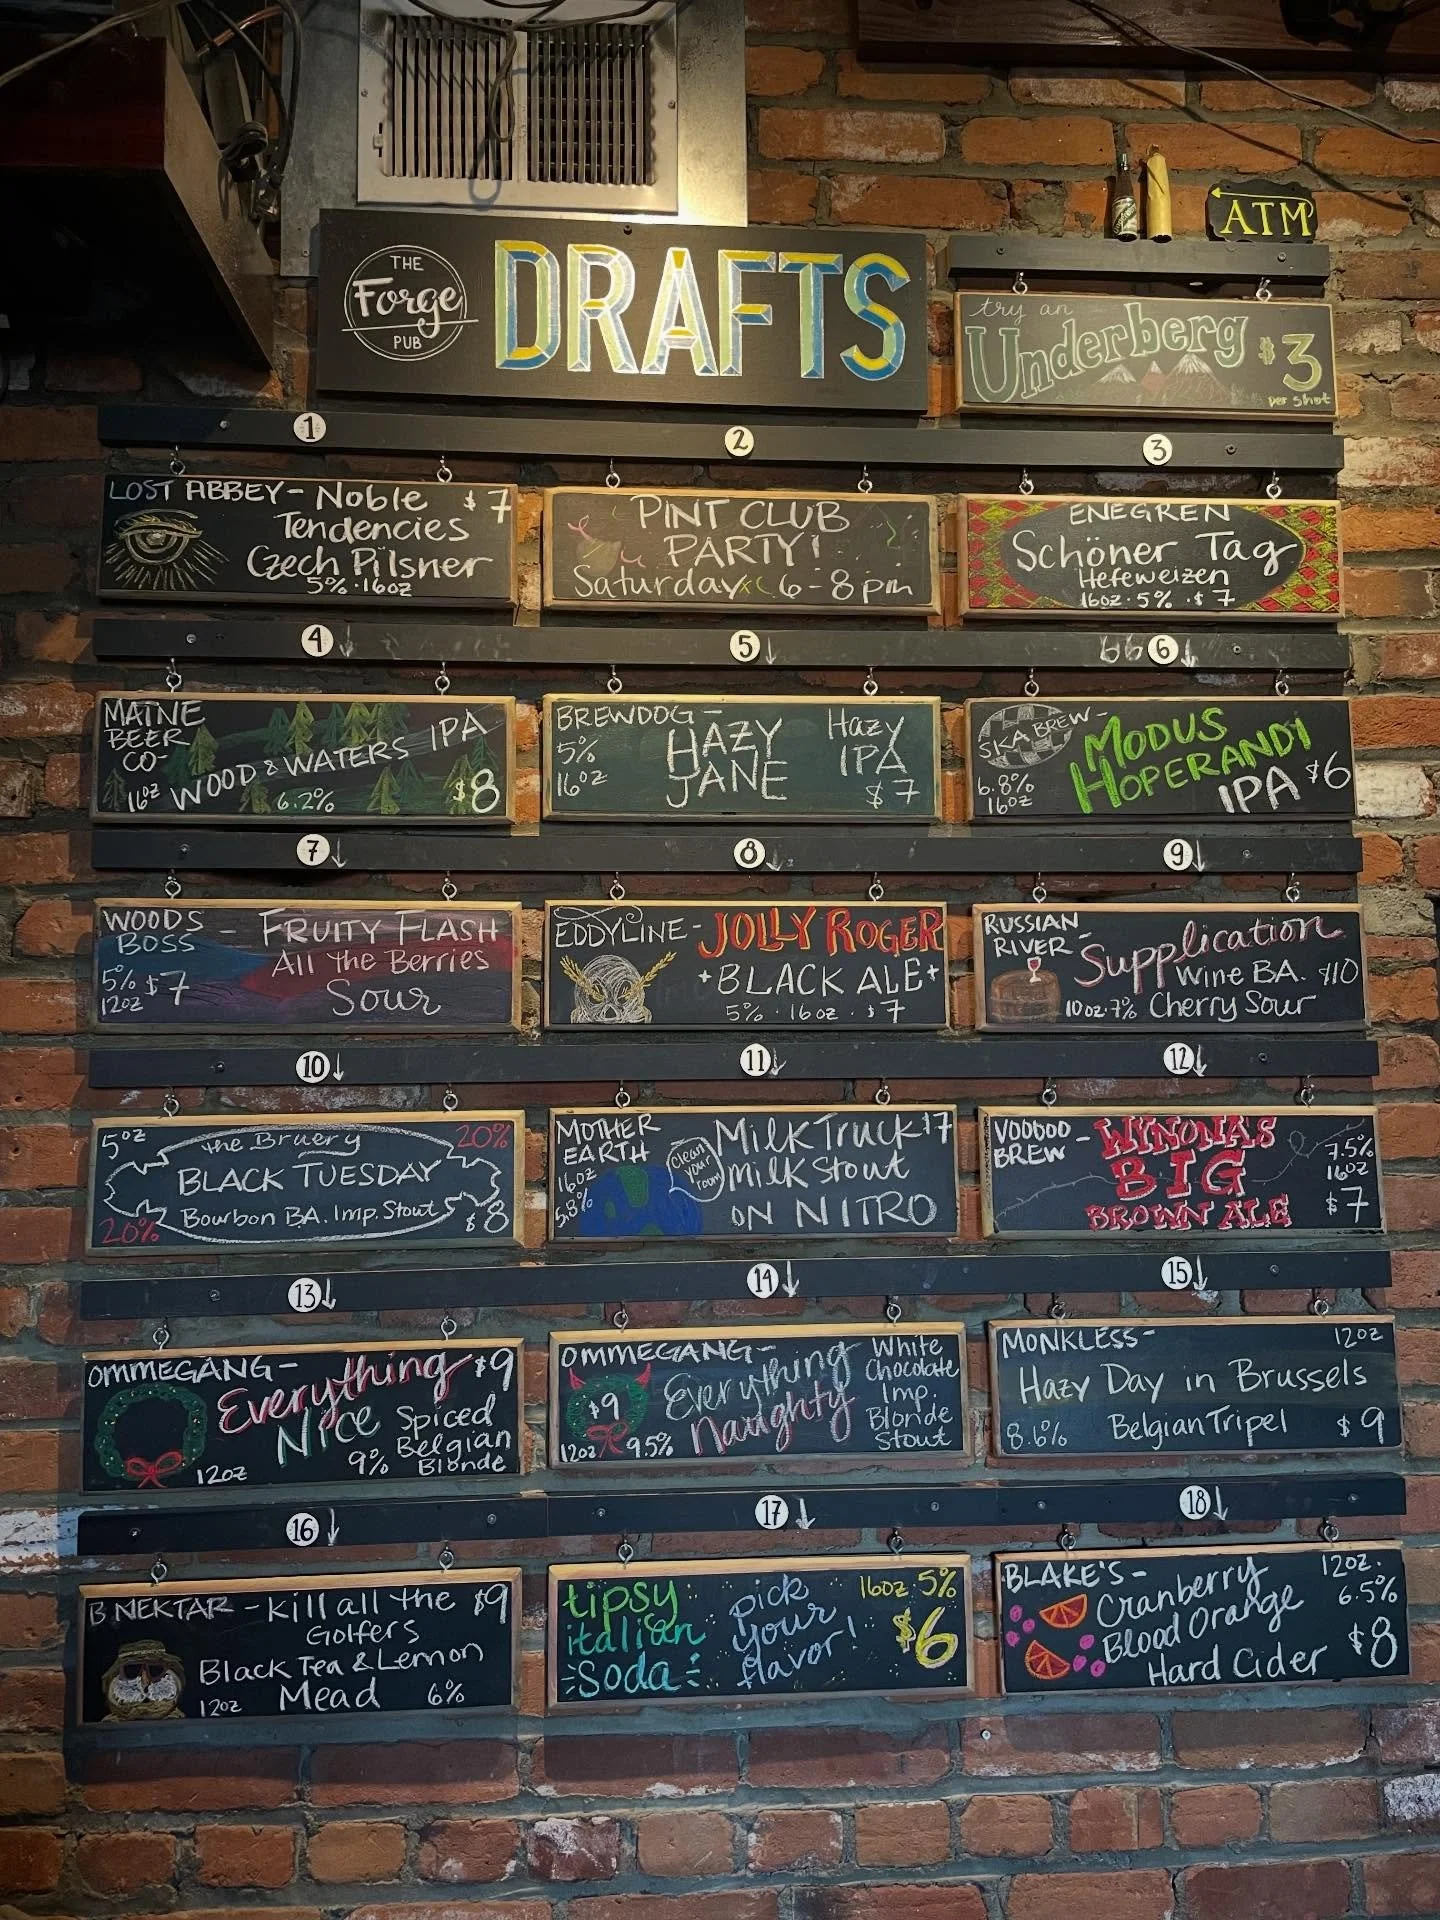 THE
Forge
PUB
DRAFTS
ATM
try an
Underberg $3
per shot
1
LOST ABBEY - Noble $7
Tendencies
Czech Pilsner
5% · 16oz
2
PINT CLUB
PARTY!
Saturday 6-8pm
3
ENEGREN
Schöner Tag
Hefeweizen
16oz · 5% · $7
4
MAINE
BEER
CO-
WOOD & WATERS IPA
16oz 6.2% $8
5
BREWDOG -
HAZY
JANE
5%
16oz
Hazy
IPA
$7
6
SKA BREW-
MODUS
HOPERANDI
IPA $6
6.8%
16oz
7
WOODS
BOSS -
FRUITY FLASH
All the Berries
Sour
5%
12oz
$7
8
EDDYLINE - JOLLY ROGER
BLACK ALE
5% · 16oz · $7
9
RUSSIAN
RIVER -
Supplication
Wine BA. $10
10oz · 7% Cherry Sour
10
5oz the Bruery 20%
BLACK TUESDAY
20% Bourbon BA. Imp. Stout $8
11
MOTHER
EARTH
16oz
5.8%
Clean
your
room
Milk Truck $7
Milk Stout
ON NITRO
12
VOODOO -
BREW
WYNONA'S
BIG
BROWN ALE
7.5%
16oz
$7
13
OMMEGANG -
Everything $9
Nice
Spiced
Belgian
Blonde
12oz 9%
14
OMMEGANG -
Everything
Naughty
$9
12oz 9.5%
White
Chocolate
Imp.
Blonde
Stout
15
MONKLESS - 12oz
Hazy Day in Brussels
8.6% Belgian Tripel $9
16
B NEKTAR - Kill all the $9
Golfers
Black Tea & Lemon
12oz Mead 6%
17
tipsy
italian
Soda
pick
your
flavor!
16oz 5%
$6
18
BLAKE'S -
Cranberry
Blood Orange
Hard Cider
12oz.
6.5%
$8